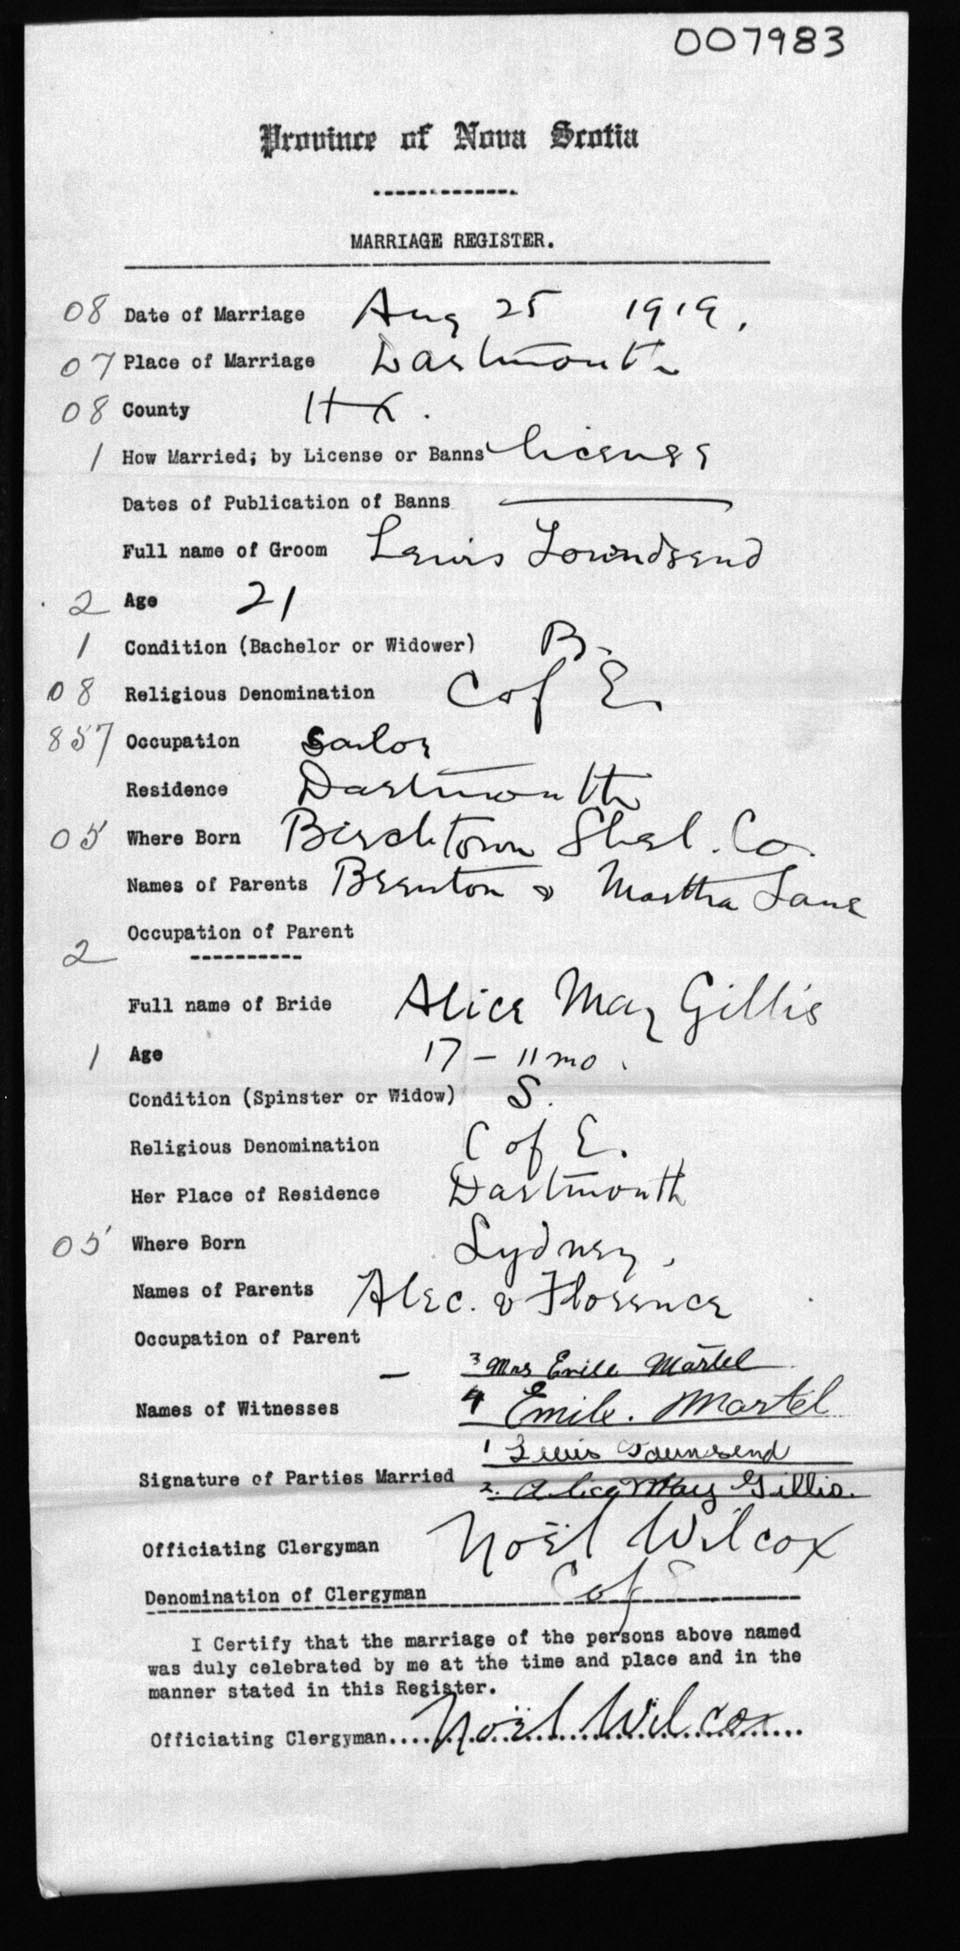 007983
Province of Nova Scotia
MARRIAGE REGISTER.
08 Date of Marriage Aug 25 1919.
07 Place of Marriage Dartmouth
08 County Hx.
1 How Married; by License or Banns license
Dates of Publication of Banns
Full name of Groom Lewis Towndsend
2 Age 21
1 Condition (Bachelor or Widower) B.
08 Religious Denomination C of E.
857 Occupation Sailor
Residence Dartmouth
05 Where Born Birchtown Shel. Co.
Names of Parents Brenton & Martha Jane
Occupation of Parent
2
Full name of Bride Alice May Gillis
1 Age 17 - 11 mo.
Condition (Spinster or Widow) S.
Religious Denomination C of E.
Her Place of Residence Dartmouth
05 Where Born Sydney,
Names of Parents Alec. & Florence
Occupation of Parent —
3 Mrs Emile Martel
Names of Witnesses 4 Emile. Martel
1 Lewis Townsend
Signature of Parties Married
2. Alice May Gillis.
Officiating Clergyman Noël Wilcox
Denomination of Clergyman C of E
I Certify that the marriage of the persons above named
was duly celebrated by me at the time and place and in the
manner stated in this Register.
Officiating Clergyman....Noël Wilcox...